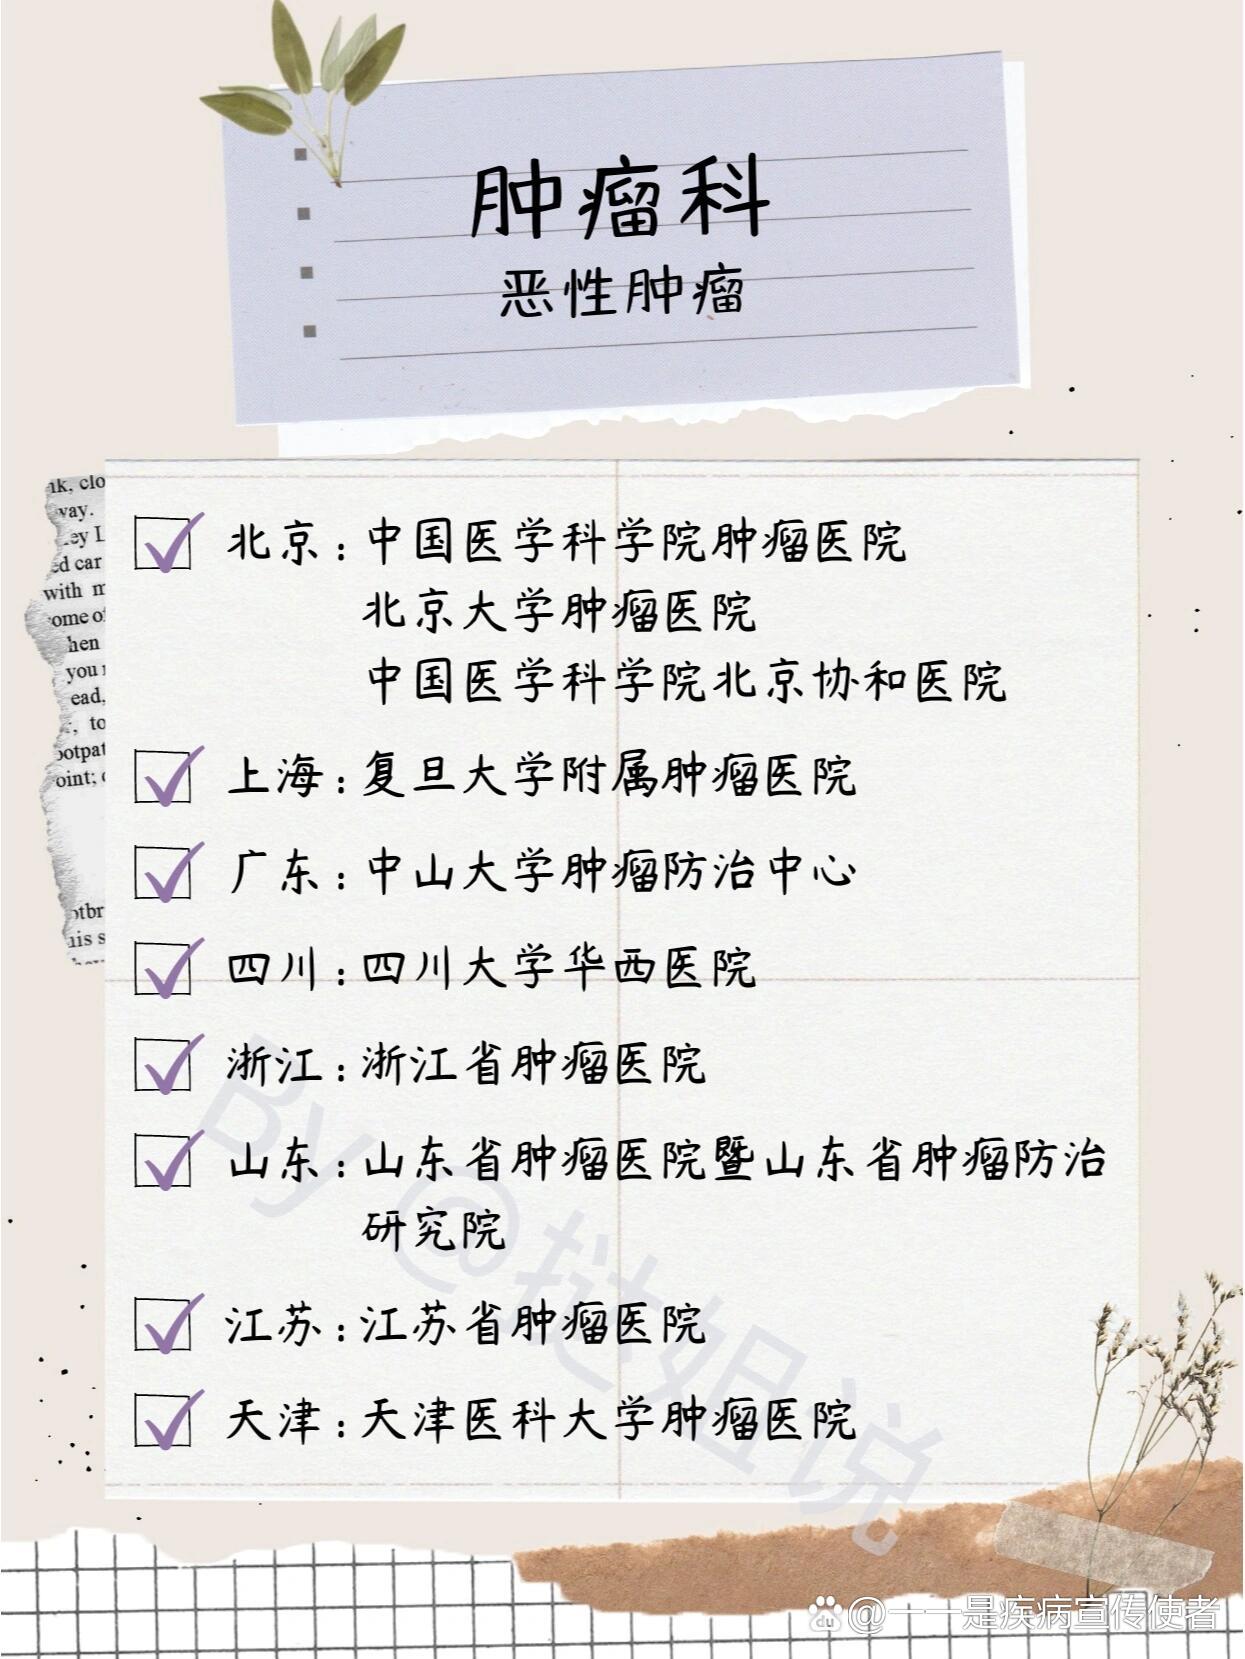 肿瘤科
恶性肿瘤
ık, clo
way.
ey L
ed car
with m
ome of
hen
you r
ead,
, to
ootpat
oint; c
otbr
his s
北京：中国医学科学院肿瘤医院
北京大学肿瘤医院
中国医学科学院北京协和医院
上海：复旦大学附属肿瘤医院
广东：中山大学肿瘤防治中心
四川：四川大学华西医院
浙江：浙江省肿瘤医院
山东：山东省肿瘤医院暨山东省肿瘤防治
研究院
江苏：江苏省肿瘤医院
天津：天津医科大学肿瘤医院
By @挞姐说
du @一一是疾病宣传使者